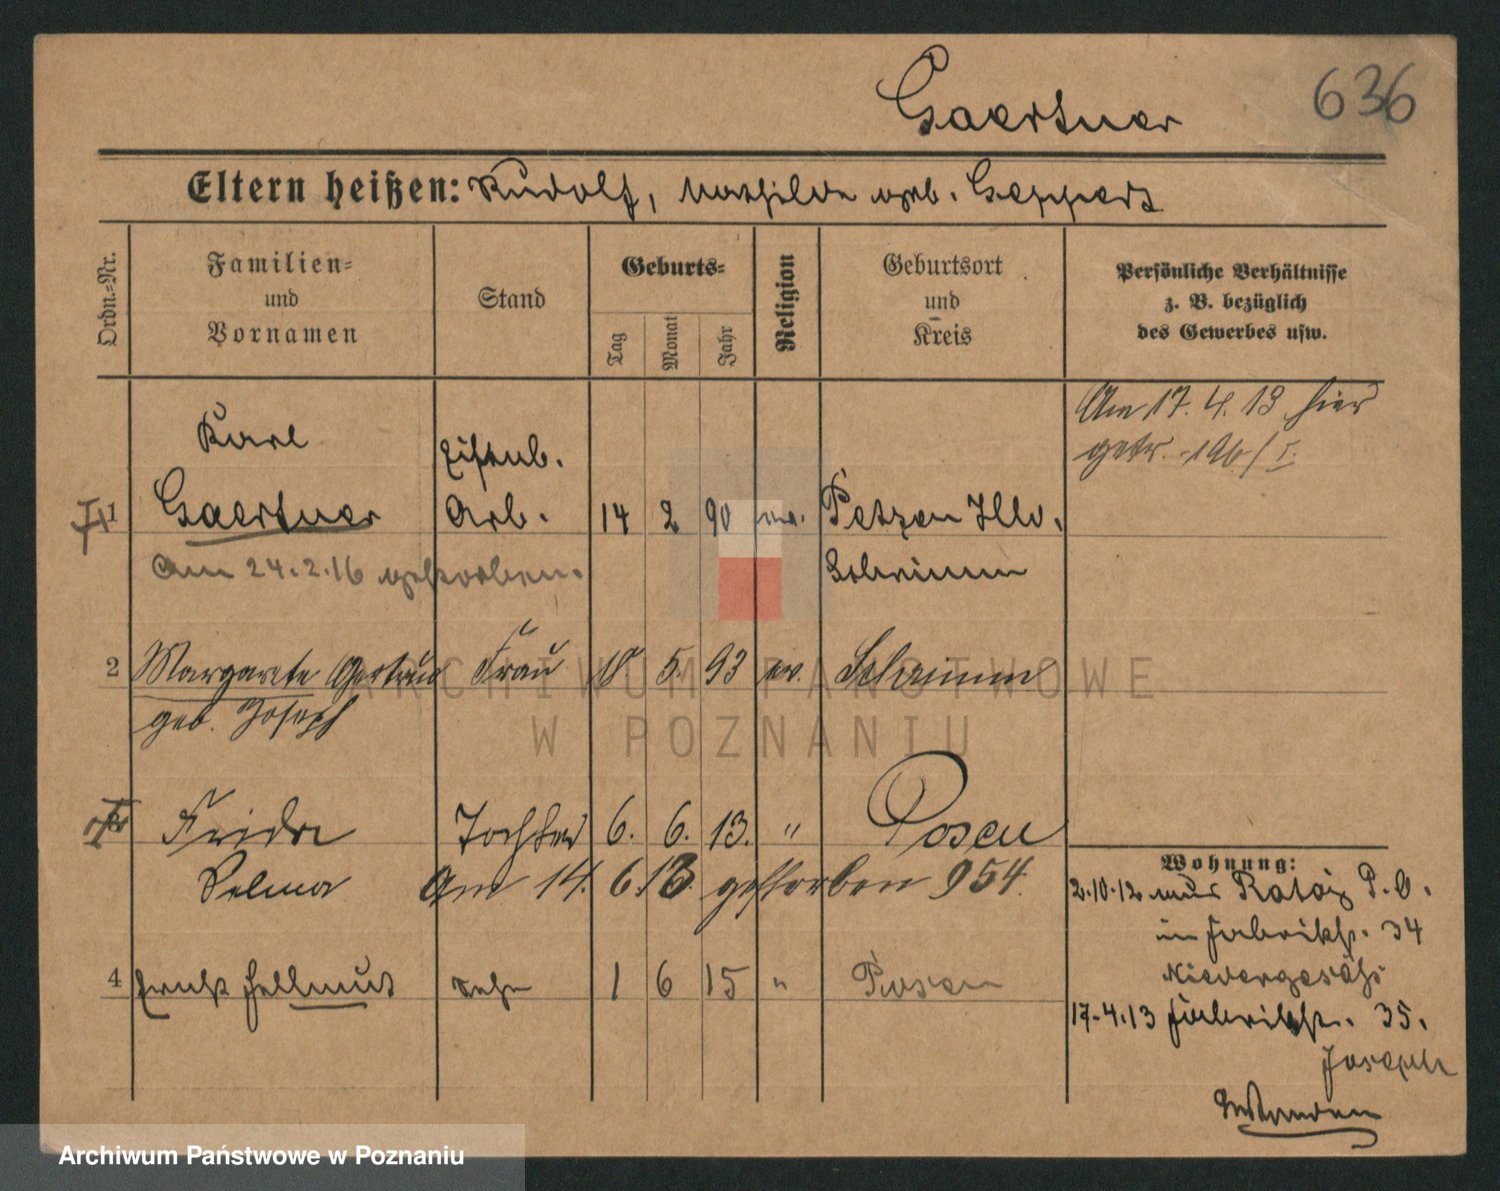 Gaertner
636
Eltern heißen: Rudolf, Mathilde geb. Geppert
Ordn.-Nr.
Familien-
und
Vornamen
Stand
Geburts-
Tag
Monat
Jahr
Religion
Geburtsort
und
Kreis
Persönliche Verhältnisse
z. B. bezüglich
des Gewerbes usw.
Am 17. 4. 13 hier
getr. 196/I.
Karl
Gaertner
1
Arb.
14 2 90 ev.
Schrimm
Am 24.2.16 gestorben.
2 Margarete Gertrud Frau 18 5. 93 ev. Schrimm
geb. Joseph
Frida Tochter 6. 6. 13. " Posen
Selma Am 14. 6.13. gestorben 954.
4 Ernst Hellmut Sohn 1 6 15 " Posen
Wohnung:
2.10.12 aus P. O.
in Fabrikstr. 34
17.4.13 Fabrikstr. 35.
Joseph
ARCHIWUM PAŃSTWOWE
W POZNANIU
Archiwum Państwowe w Poznaniu